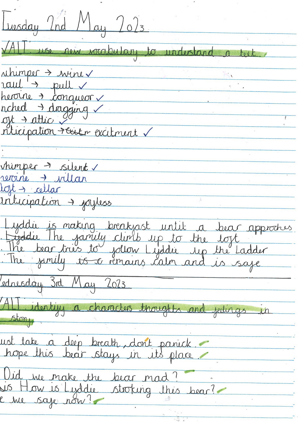 Tuesday 2nd May 2023
WALT use new vocabulary to understand a text
whimper → whine
haul → pull
heroine → conqueror
→ dragging
loft → attic
anticipation → excitment
whimper → silent
heroine → villan
loft → cellar
anticipation → joyless
Lyddie is making breakfast until a bear approches
The family climb up to the loft
The bear tries to follow Lyddie up the Ladder
The family remains calm and is safe
Wednesday 3rd May 2023
WALT identify a characters thoughts and feelings in
story
Just take a deep breath, don't panick
hope this bear stays in its place
Did we make the bear mad?
How is Lyddie stroking this bear?
we safe now?